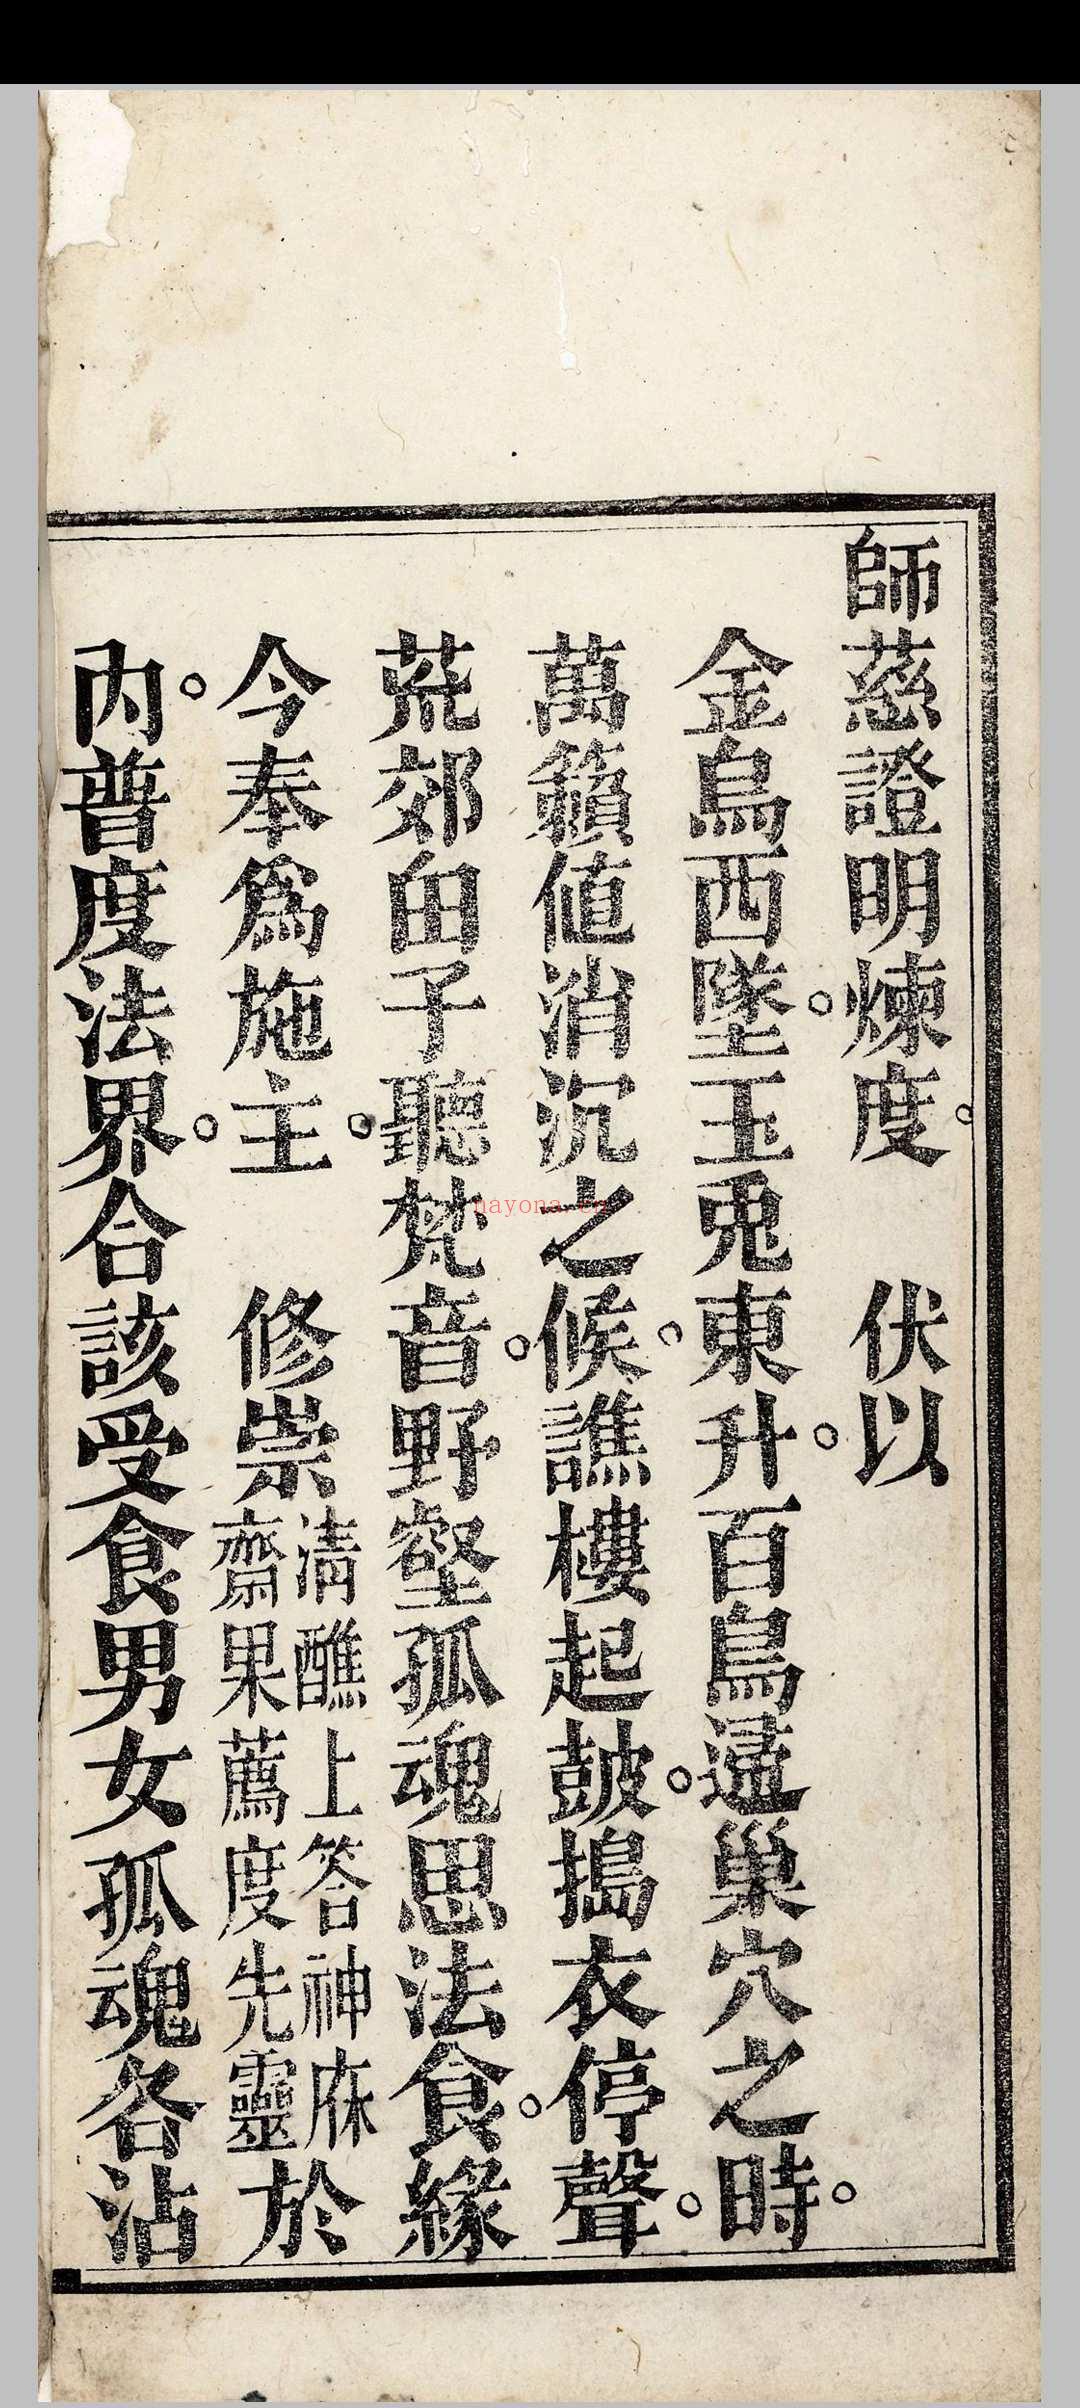 師慈證明煉度　伏以
金鳥西墜玉兎東升百鳥巢穴之時
萬籟值消沉之候譙樓起皷搗衣停聲
荒郊甶子聽梵音野壑孤魂思法食緣
今奉爲施主　修崇清醮上答神庥齋果薦度先靈於
內普度法界合該受食男女孤魂各沾
nayona.cn